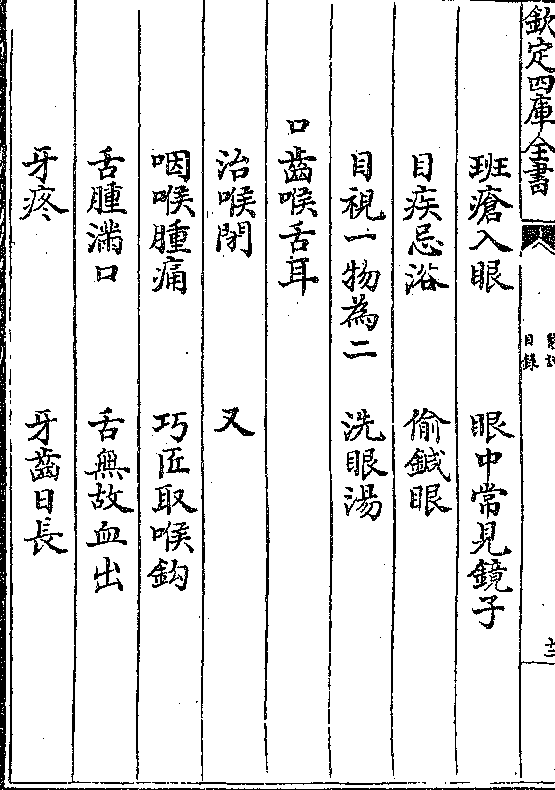 欽定四庫全書
醫說
目錄
十三
班瘡入眼 眼中常見鏡子
目疾忌浴 偷鍼眼
目視一物為二 洗眼湯
口齒喉舌耳
治喉閉 又
咽喉腫痛 巧匠取喉鈎
舌腫滿口 舌無故血出
牙疼 牙齒日長